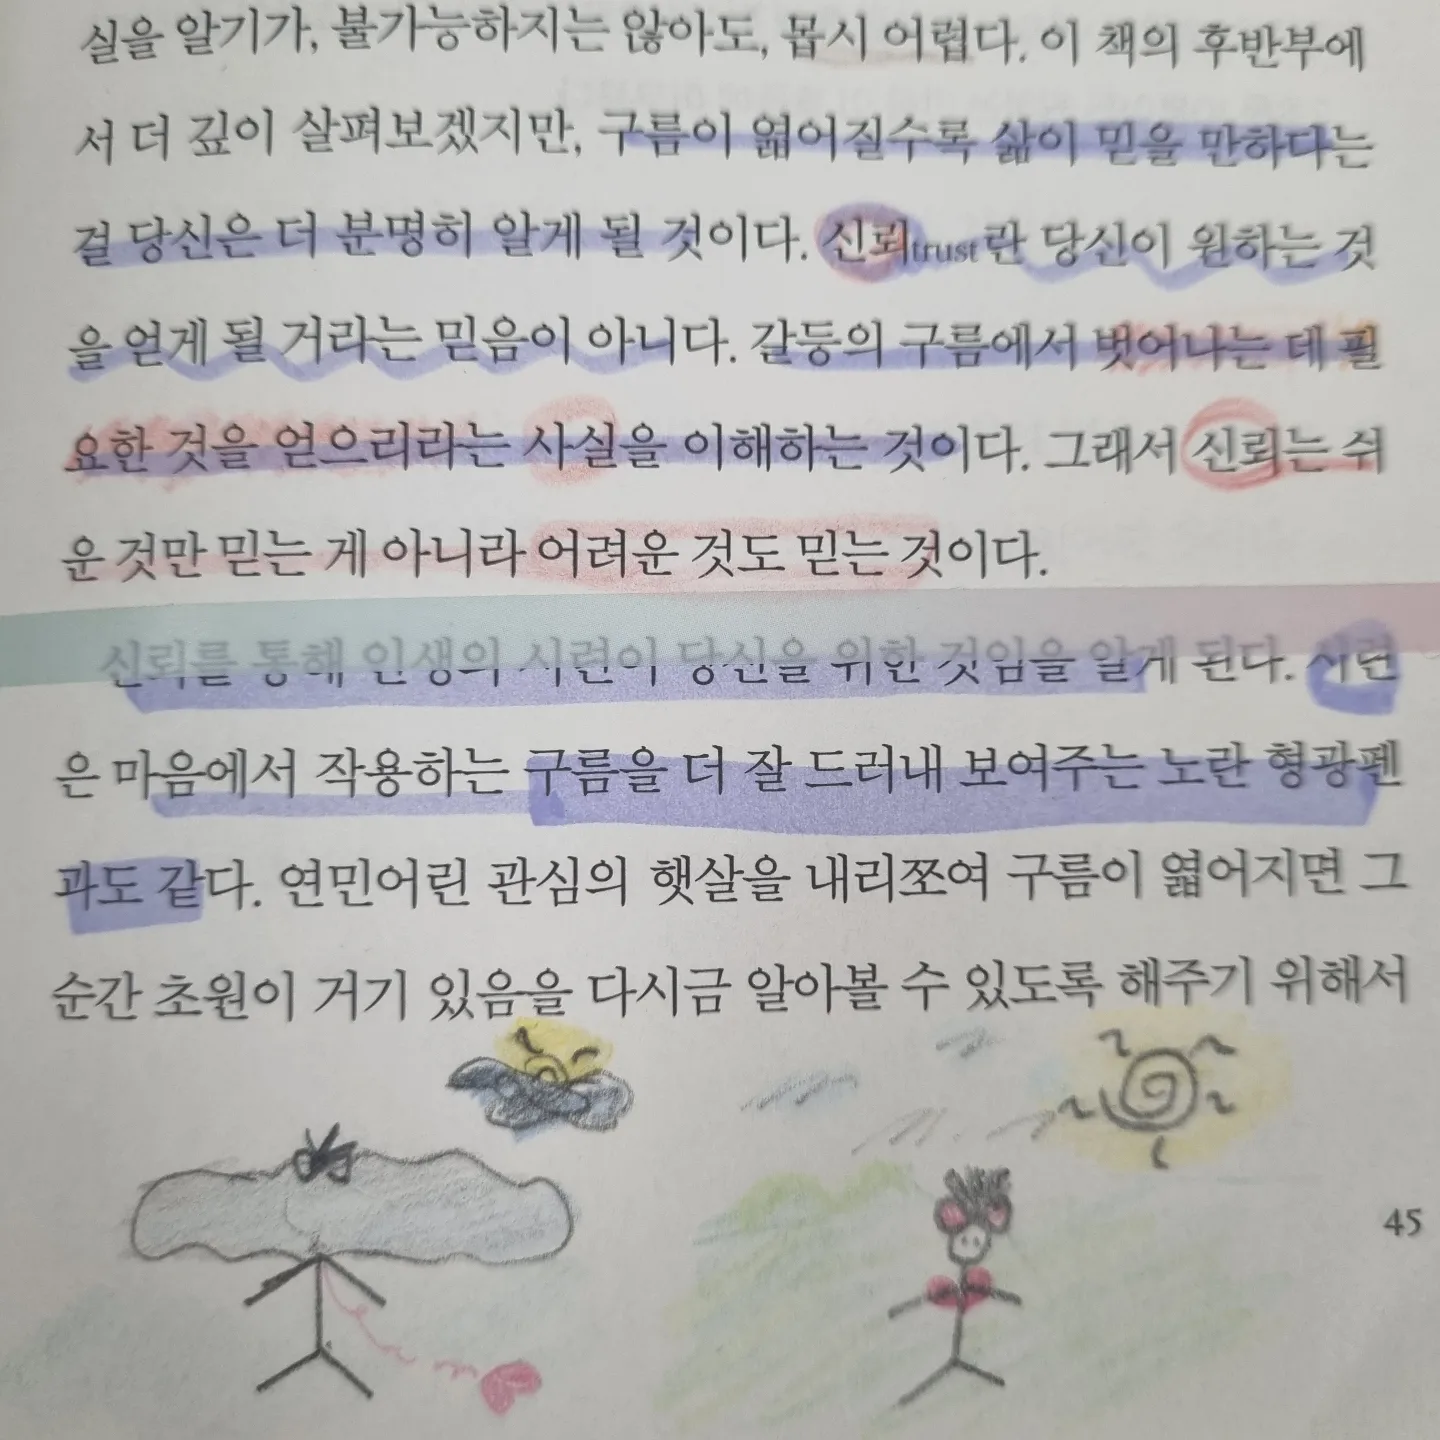 실을 알기가, 불가능하지는 않아도, 몹시 어렵다. 이 책의 후반부에
서 더 깊이 살펴보겠지만, 구름이 엷어질수록 삶이 믿을 만하다는
걸 당신은 더 분명히 알게 될 것이다. 신뢰trust란 당신이 원하는 것
을 얻게 될 거라는 믿음이 아니다. 갈등의 구름에서 벗어나는 데 필
요한 것을 얻으리라는 사실을 이해하는 것이다. 그래서 신뢰는 쉬
운 것만 믿는 게 아니라 어려운 것도 믿는 것이다.
신뢰를 통해 인생의 시련이 당신을 위한 것임을 알게 된다. 시련
은 마음에서 작용하는 구름을 더 잘 드러내 보여주는 노란 형광펜
과도 같다. 연민어린 관심의 햇살을 내리쪼여 구름이 엷어지면 그
순간 초원이 거기 있음을 다시금 알아볼 수 있도록 해주기 위해서
45